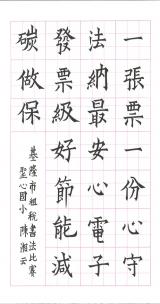 一張票一份心守
法納最安心電子
發票級好節能減
碳做保
基隆市租稅書法比賽
聖心國小 陳湘云